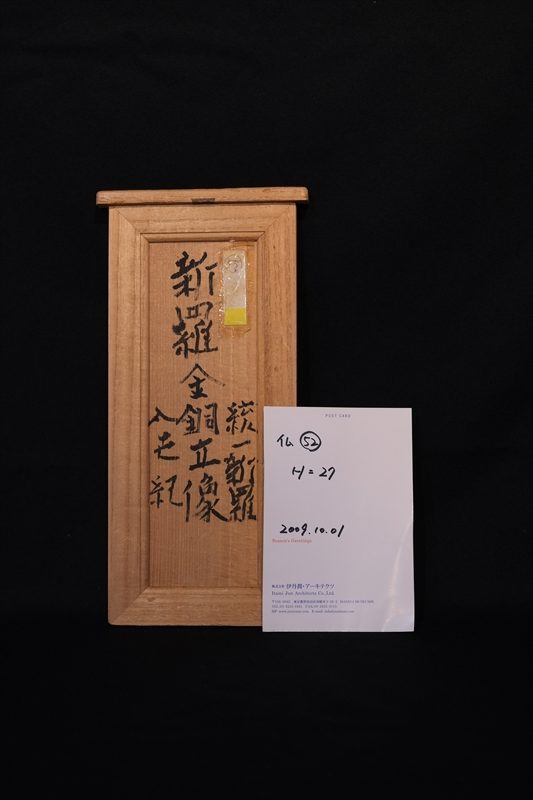 新羅金銅立像
統一新羅
八世紀
POST CARD
仏 52
H=27
2009.10.01
Season's Greetings
株式会社 伊丹潤・アーキテクツ
Itami Jun Architects Co.,Ltd.